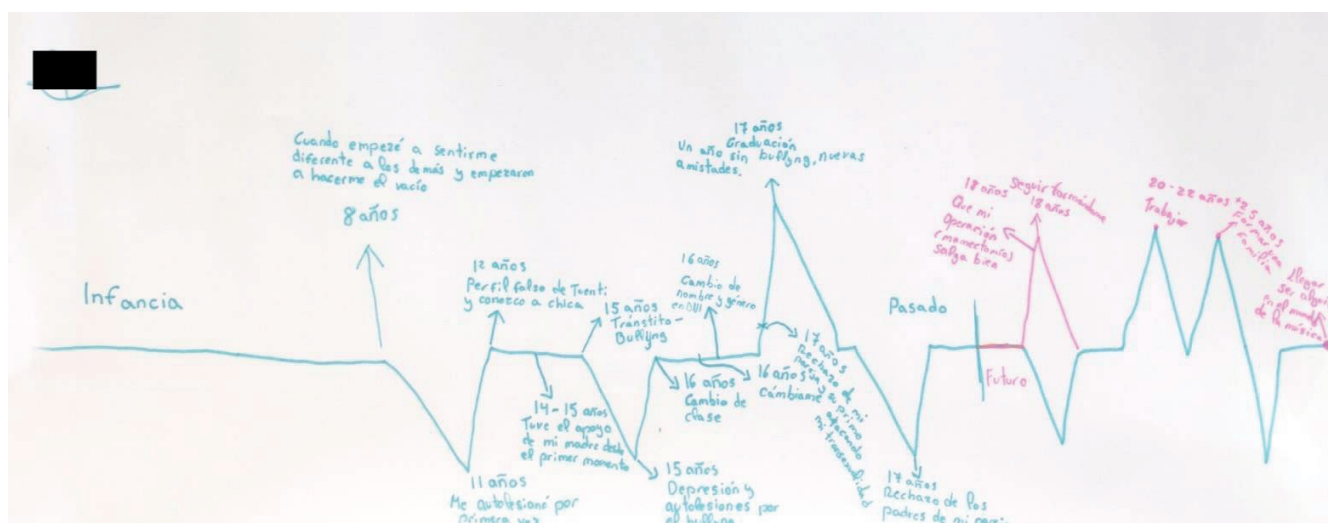 Infancia
Cuando empezé a sentirme
diferente a los demás y empezaron
a hacerme el vacío
8 años
11 años
Me autolesioné por
primera vez
12 años
Perfil falso de Tuenti
y conozco a chica
14-15 años
Tuve el apoyo
de mi madre desde
el primer momento
15 años
Tránstito-
Bullyng
15 años
Depresión y
autolesiones por
el bullyng
16 años
Cambio de
clase
16 años
Cambio de
nombre y género
en DNI
16 años
cámbiame
17 años
Graduación
Un año sin bullyng, nuevas
amistades.
17 años
Rechazo de mi
y su primo
atacando
mi transexualidad
17 años
Rechazo de los
padres de mi
Pasado
Futuro
18 años
Que mi
operación
(mamectomía)
salga bien
Seguir formándome
18 años
20-22 años
Trabajar
+25 años
Formar una
familia
llegar
ser
en el mundo
de la música